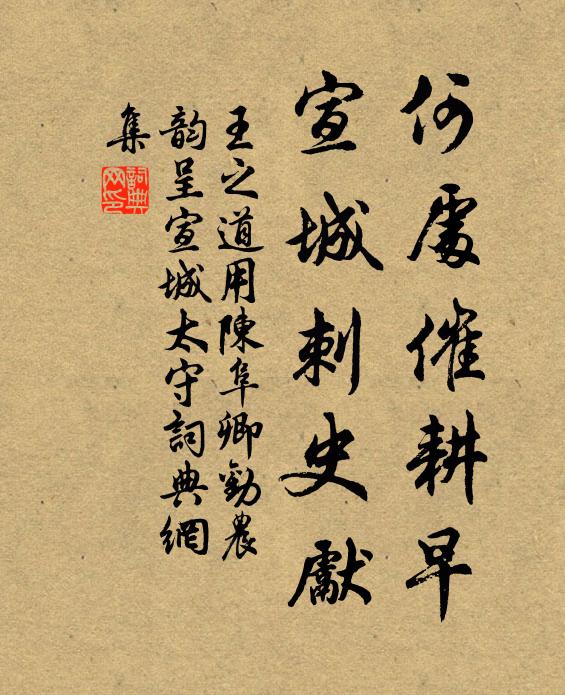 何處催耕早
宣城刺史獻
王之道用陳阜卿勸農
韵呈宣城太守詞典網
集
詞典
网印